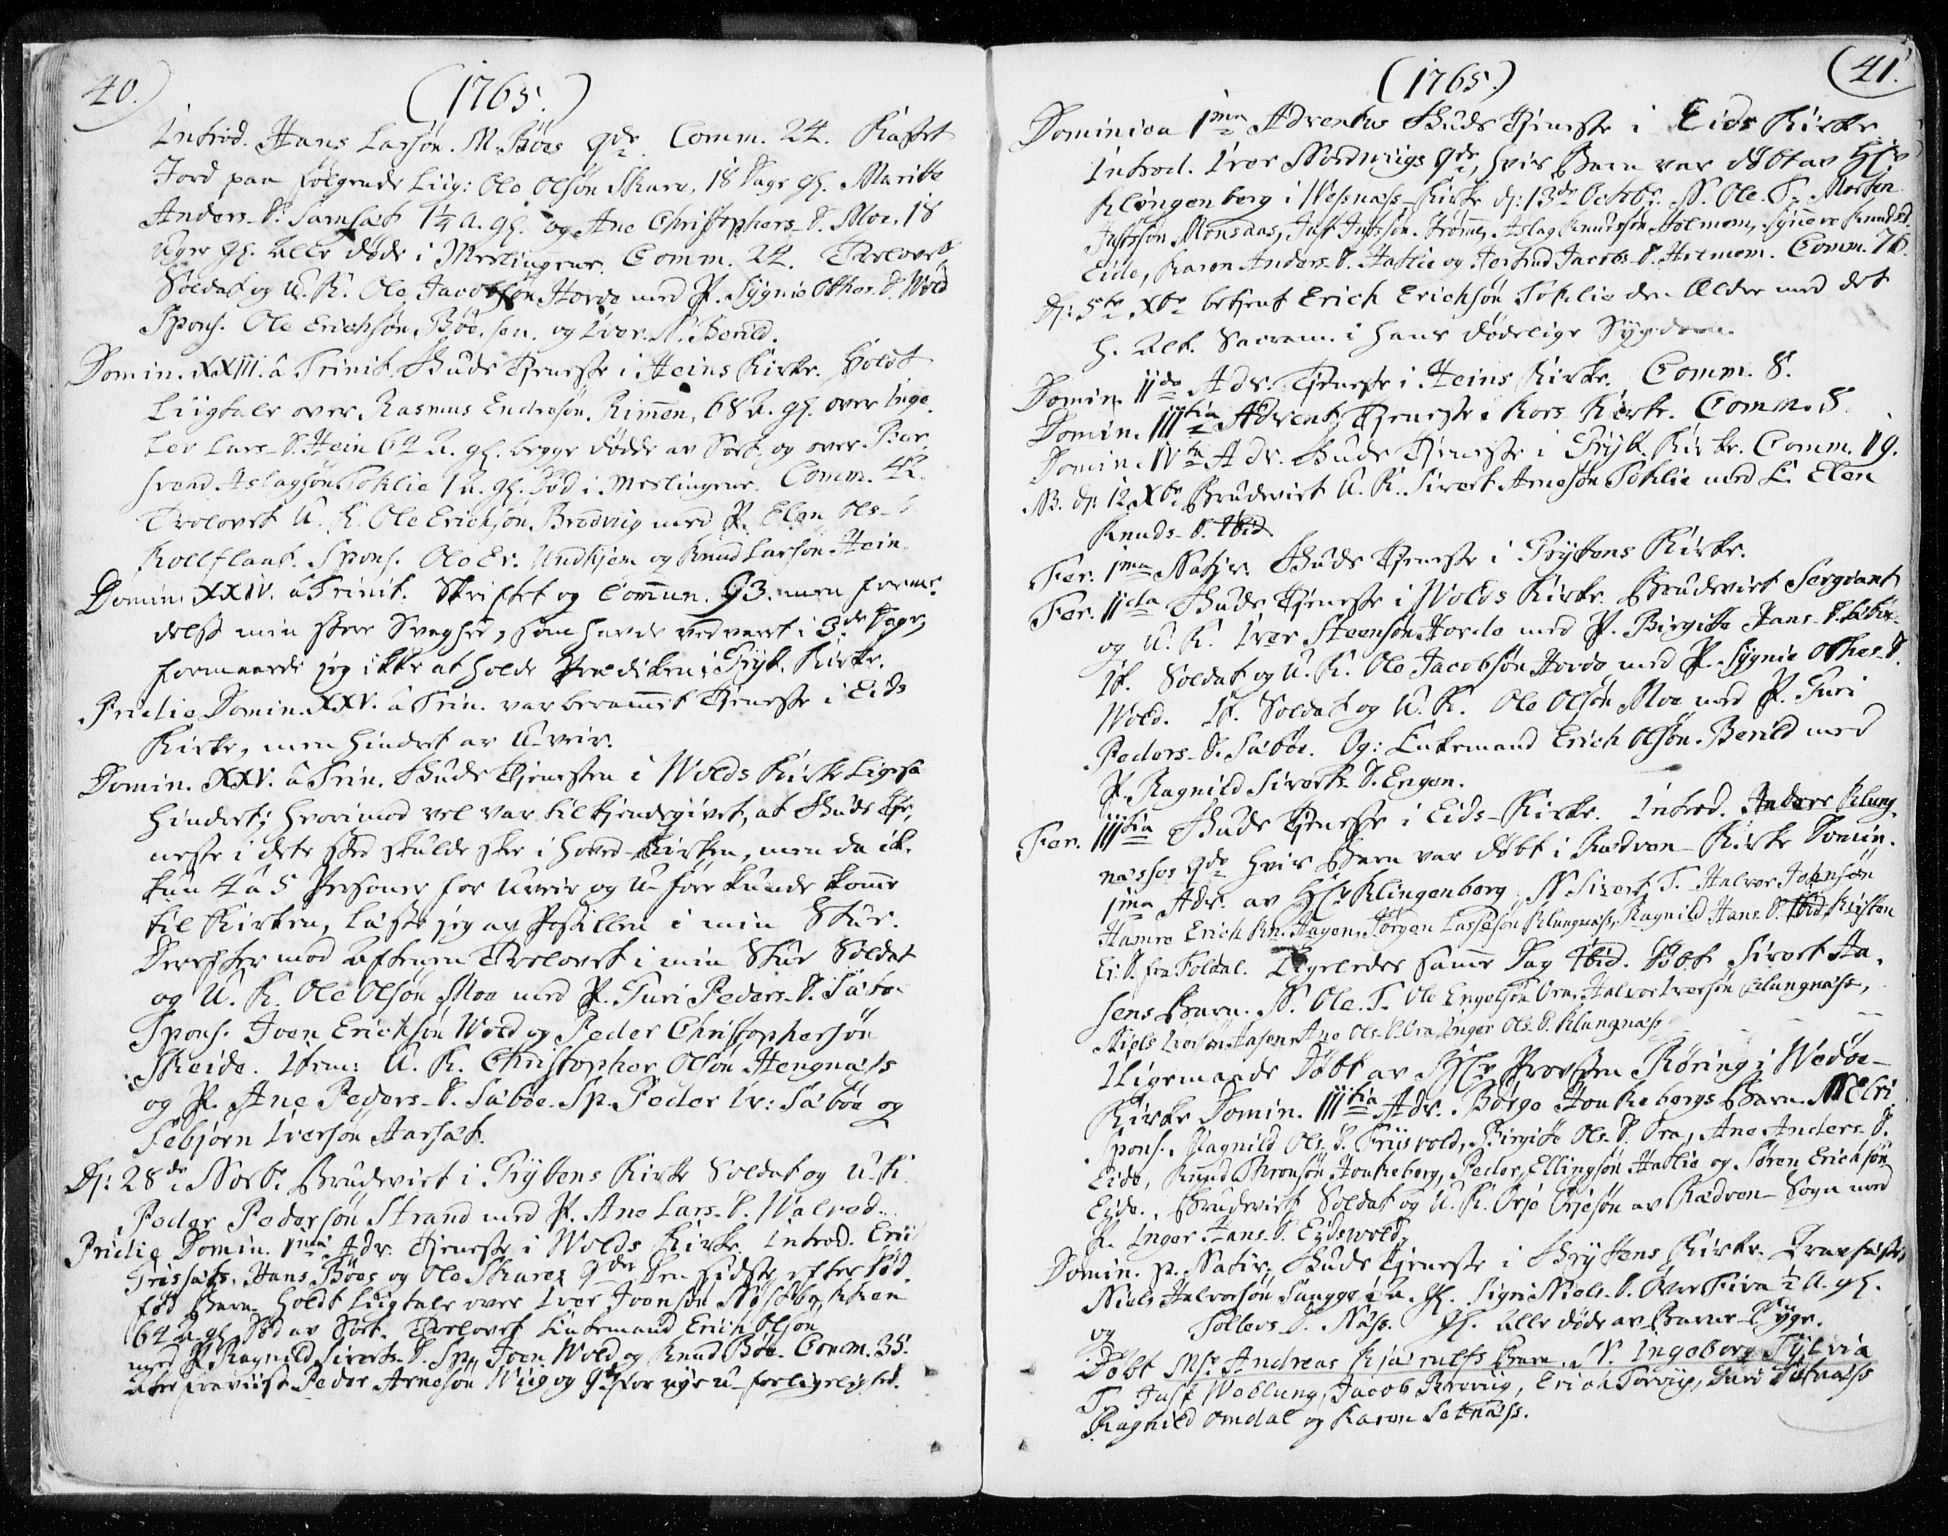 40.)
(1765.)
Introd. Hans Larsøn M. Böes qde. Comm. 24. Kastet
Jord paa følgende Liig: Ole Olsøn Skare, 18 Dage gl. Maritte
Anders-D. Samsæt 1¼ A. gl. og Ane Christophers-D. Moe, 18
Uger gl. alle døde i Meslingerne. Comm. 24. Trolovet
Soldat og U. K. Ole Jacobsøn Horde med P. Sygnie Othes-D. Wold
Spons. Ole Erichsøn Böe, sen. og Iver N. Berild.
Domin. XXIII. â Trinit. Guds Tjeneste i Heins Kirke. Holdt
Liigtale over Rasmus Endresøn Rimen, 68 A. gl. over Inge-
Lars-D. Hein 64 A. gl. begge døde av Sot, og over
Aslagsøn Toklie 1 A. gl. død i Meslingerne. Comm. 42.
Trolovet U. K. Ole Erichsøn Brøvig med P. Elen Ols-D.
Kollflaat. Spons. Ole Er. Undhjem og Knud Larsøn Hein.
Domin. XXIV. â Trinit. Skriftet og Commun. 93. men
min store Svaghed, som havde vedvaret i 3de Dage,
formaaede jeg ikke at holde Prædiken i Gryt. Kirke.
Pridie Domin. XXV. â Trin. var berammet Tjeneste i Eids
Kirke, men hindret av U-veir.
Domin. XXV. â Trin. Guds Tjenesten i Wolds Kirke ligesaa
hindret; hvorimod vel var tilkjendegivet, at Guds Tje-
neste i dets sted skulde skee i Hoved-Kirken, men da ik-
kun 4 â 5 Personer for Uveir og U-føre kunde komme
til Kirken, læste jeg av Postillen i min Stue.
Derefter mod Aftenen Trolovet i min Stue Soldat
og U. K. Ole Olsøn Moe med P. Guri Peders-D. Sæbø
Spons. Joen Erichsøn Wold og Peder Christophersøn
Skeide. Item: U. K. Christopher Olsøn Hengnæss
og P. Ane Peders-D. Sæbøe. Sp. Peder Iv: Sæbøe og
Sebjørn Iversøn Aarsæt.
D: 28de Novbr Brudeviet i Grytens Kirke Soldat og U. K.
Peder Pedersøn Strand med P. Ane Lars-D. Walvod.
Pridie Domin. 1ma Adv. Tjeneste i Wolds Kirke. Introd. Erich
Hans Böes og Ole Skares qdr. Den sidste efter død-
fød Barn. Holdt Liigtale over Iver Joensøn
64 A. gl. død av Sot. Trolovet Enkemand Erich Olsøn
med P. Ragnild Siverts-D. Sp. Joen Wold og Knud Böe. Comm. 35.
Peder Arnesøn Wiig og Qde for nye U-forligelighed.
41.
(1765.)
Dominica 1ma Adventus Guds Tjeneste i Eids Kirke
Introd. Iver Nordwiigs qde, hvis Barn var døbt av Hr
Klingenberg i Wefsnæss-Kirke d: 13de Octobr. N. Ole. T. Morten
Justsøn Monsaas, Just Justsøn Trømme, Aslag Knudsøn Holmem, Synnøve Knuds-D.
Eide, Karen Anders-D. Hatlie og Jertrud Jacobs-D. Holmem. Comm. 76.
D: 5te Xbr betjent Erich Erichsøn Toklie den Ældre med det
H. Alt. Sacram. i hans dødelige Sygdom.
Domin. IIda Adv. Tjeneste i Heins Kirke. Comm. 8.
Domin. IIItia Advent. Tjeneste i Kors Kirke. Comm. 8.
Domin. IVta Adv. Guds Tjeneste i Gryt. Kirke. Comm. 19.
NB. d: 12 Xbr Brudeviet U. K. Sivert Arnesøn Toklie med E. Elen
Knuds-D. Ibid.
Fer. 1ma Nativ. Guds Tjeneste i Grytens Kirke.
Fer. IIda Guds Tjeneste i Wolds Kirke. Brudeviet Sergeant
og U. K. Iver Steensøn Horde med P. Birgitte Hans-D.
It. Soldat og U. K. Ole Jacobsøn Horde med P. Sygnie Othes-D.
Wold. It. Soldat og U. K. Ole Olsøn Moe med P. Guri
Peders-D. Sæbøe. Og: Enkemand Erich Olsøn Berild med
P. Ragnild Siverts-D. Engen.
Fer. IIItia Guds Tjeneste i Eids-Kirke. Introd. Anders Klung-
næsses qde hvis Barn var døbt i Rødven-Kirke Domin.
1ma Adv. av Hr Klingenberg. N. Sivert. T. Halvor Joensøn
Hamre Erich Kn. Hagen, Jørgen Lassesøn Klungnæss, Ragnild Hans-D. Ibid. Kristen
Er. D. fra Toldal. Ligeledes samme Dag Ibid. døbt Sivert Ha-
sens Barn. N. Ole. T. Ole Engelsøn Ora, Halvor Iversøn Klungnæss,
Niels Iversøn Hasen, Ane Ols-D. Ora, Inger Ols-D. Klungnæss.
Iligemaade Døbt av Hr Provsten Røring i Wedøe-
Kirke Domin. IIItia Adv. Börge Honkebergs Barn. N. Elri
Spons. Ragnild Ols-D. Friisvold, Birgitte Ols-D. Ora, Ane Anders-D.
Eide, Knud Thronsøn Honkeberg, Peder Ellingsøn Hatlie og Søren Erichsøn
Eide. Brudeviet Soldat og U. K. Ørje Ørjesøn av Rødven-Sogn med
P. Inger Hans-D. Eidsvold.
Domin. p. Nativ. Guds Tjeneste i Grytens Kirke.
Niels Halvorsøn Sangge A. gl. Signi Niels-D. ½ A. gl.
og Tollevs-D. Næss. gl. alle døde av Barne-Syge.
Døbt Mr. Andreas Kjærulfs Barn. N. Ingeborg Sylvia
T. Just Weblung, Jacob Brevig, Erich Torviig, Guri Sætnæss
Ragnild Omdal og Karen Setnæss.